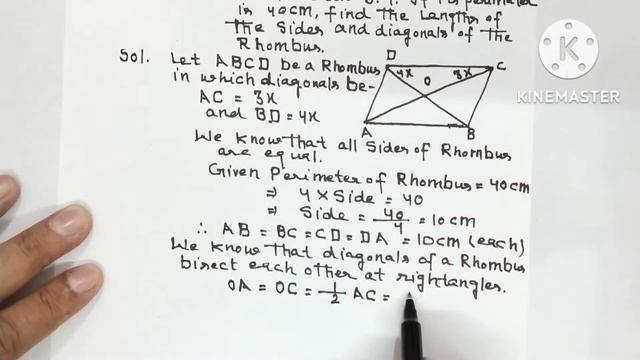 is 40cm, find the Lengths of
the Sides and diagonals of the
Rhombus.
Sol. Let ABCD be a Rhombus
in which diagonals be-
AC = 3x
and BD = 4x
D
C
4x
O
3x
A
B
KINEMASTER
We know that all Sides of Rhombus
are equal.
Given Perimeter of Rhombus = 40cm
⇒ 4 × Side = 40
⇒ Side = 40/4 = 10cm
∴ AB = BC = CD = DA = 10cm (each)
We know that diagonals of a Rhombus
bisect each other at rightangles.
OA = OC = 1/2 AC =